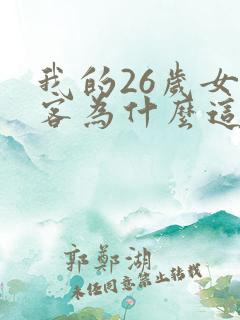 我的26歲女
客為什麼這
郭鄭湖
未經同意禁止轉載